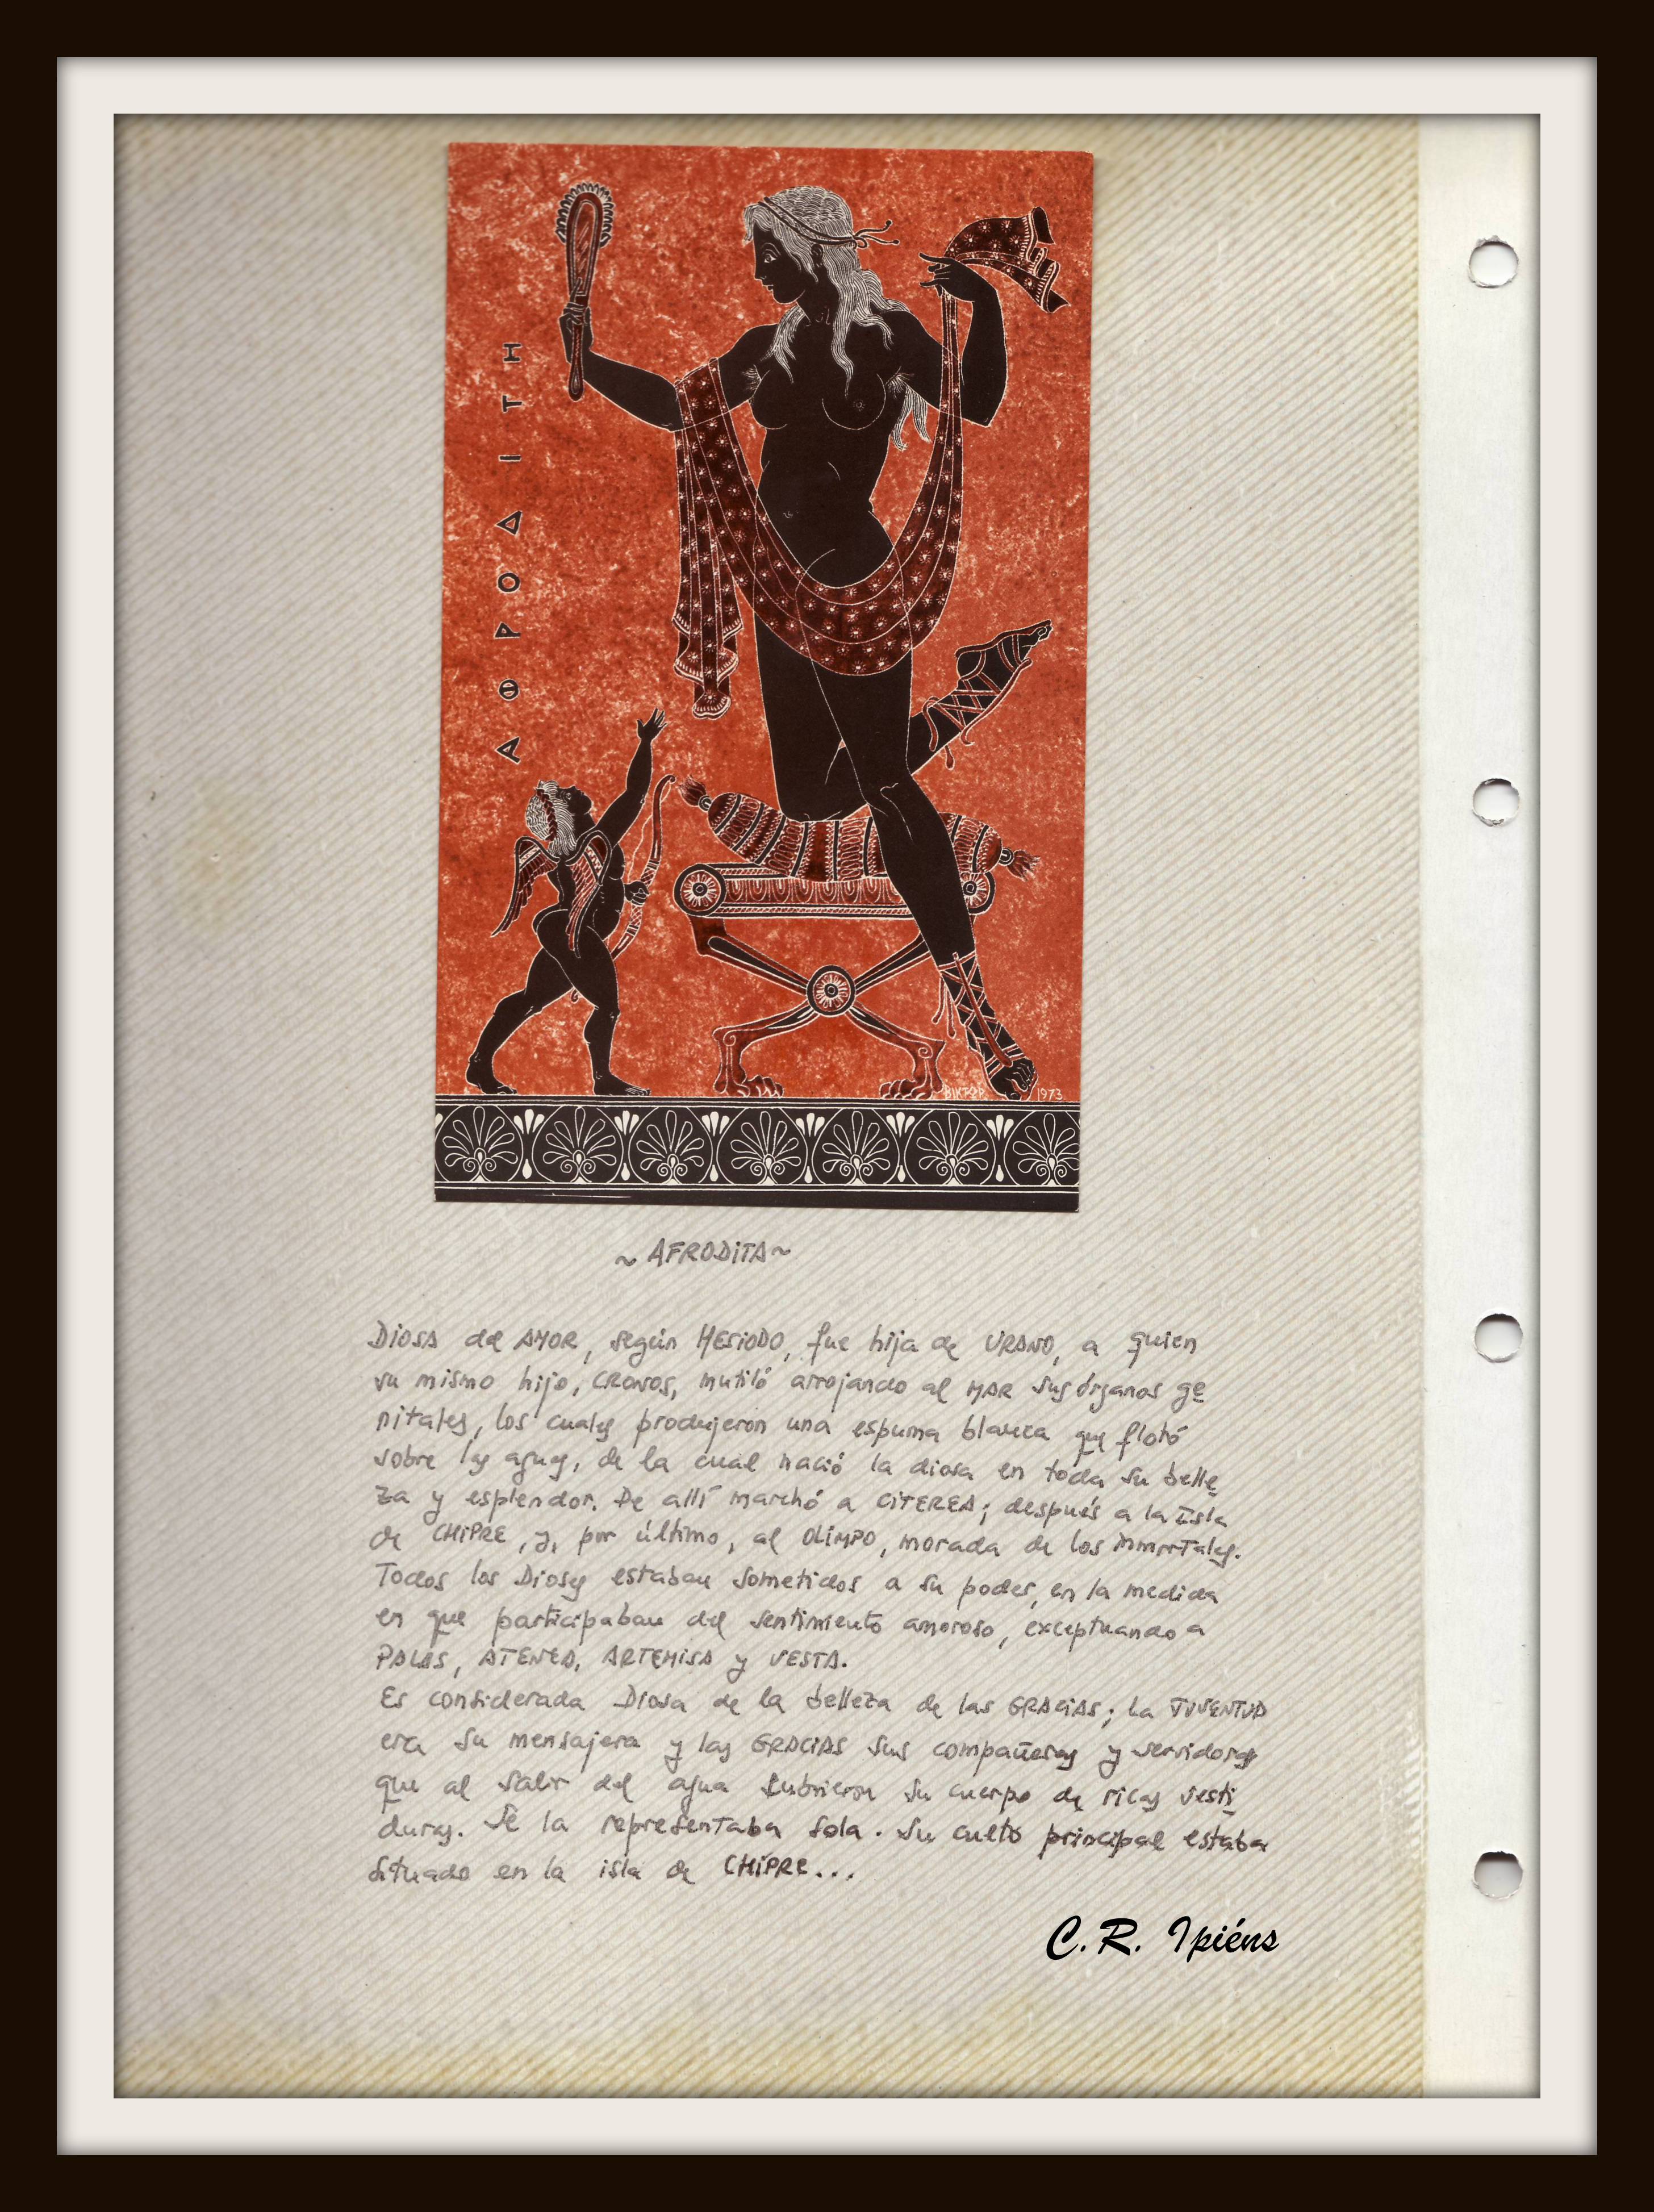 ΑΦΡΟΔΙΤΗ
ΒΙΚΤΩΡ 1973
~ AFRODiTA ~
DiOSA del AMOR, según HESIODO, fue hija de URANO, a quien
su mismo hijo, CRONOS, mutiló arrojando al MAR sus órganos ge
nitales, los cuales produjeron una espuma blanca que flotó
sobre las aguas, de la cual nació la diosa en toda su belle
za y esplendor. De allí marchó a CiTEREA; después a la Isla
de CHiPRE, y, por último, al OLiMPO, morada de los Inmortales.
Todos los Dioses estaban sometidos a su poder, en la medida
en que participaban del sentimiento amoroso, exceptuando a
PALAS, ATENEA, ARTEMISA y VESTA.
Es considerada Diosa de la belleza de las GRACiAS; La JUVENTUD
era su mensajera y las GRACiAS sus compañeras y servidoras
que al salir del agua cubrieron su cuerpo de ricas vesti
duras. Se la representaba sola. Su culto principal estaba
situado en la isla de CHiPRE...
C.R. Ipiéns